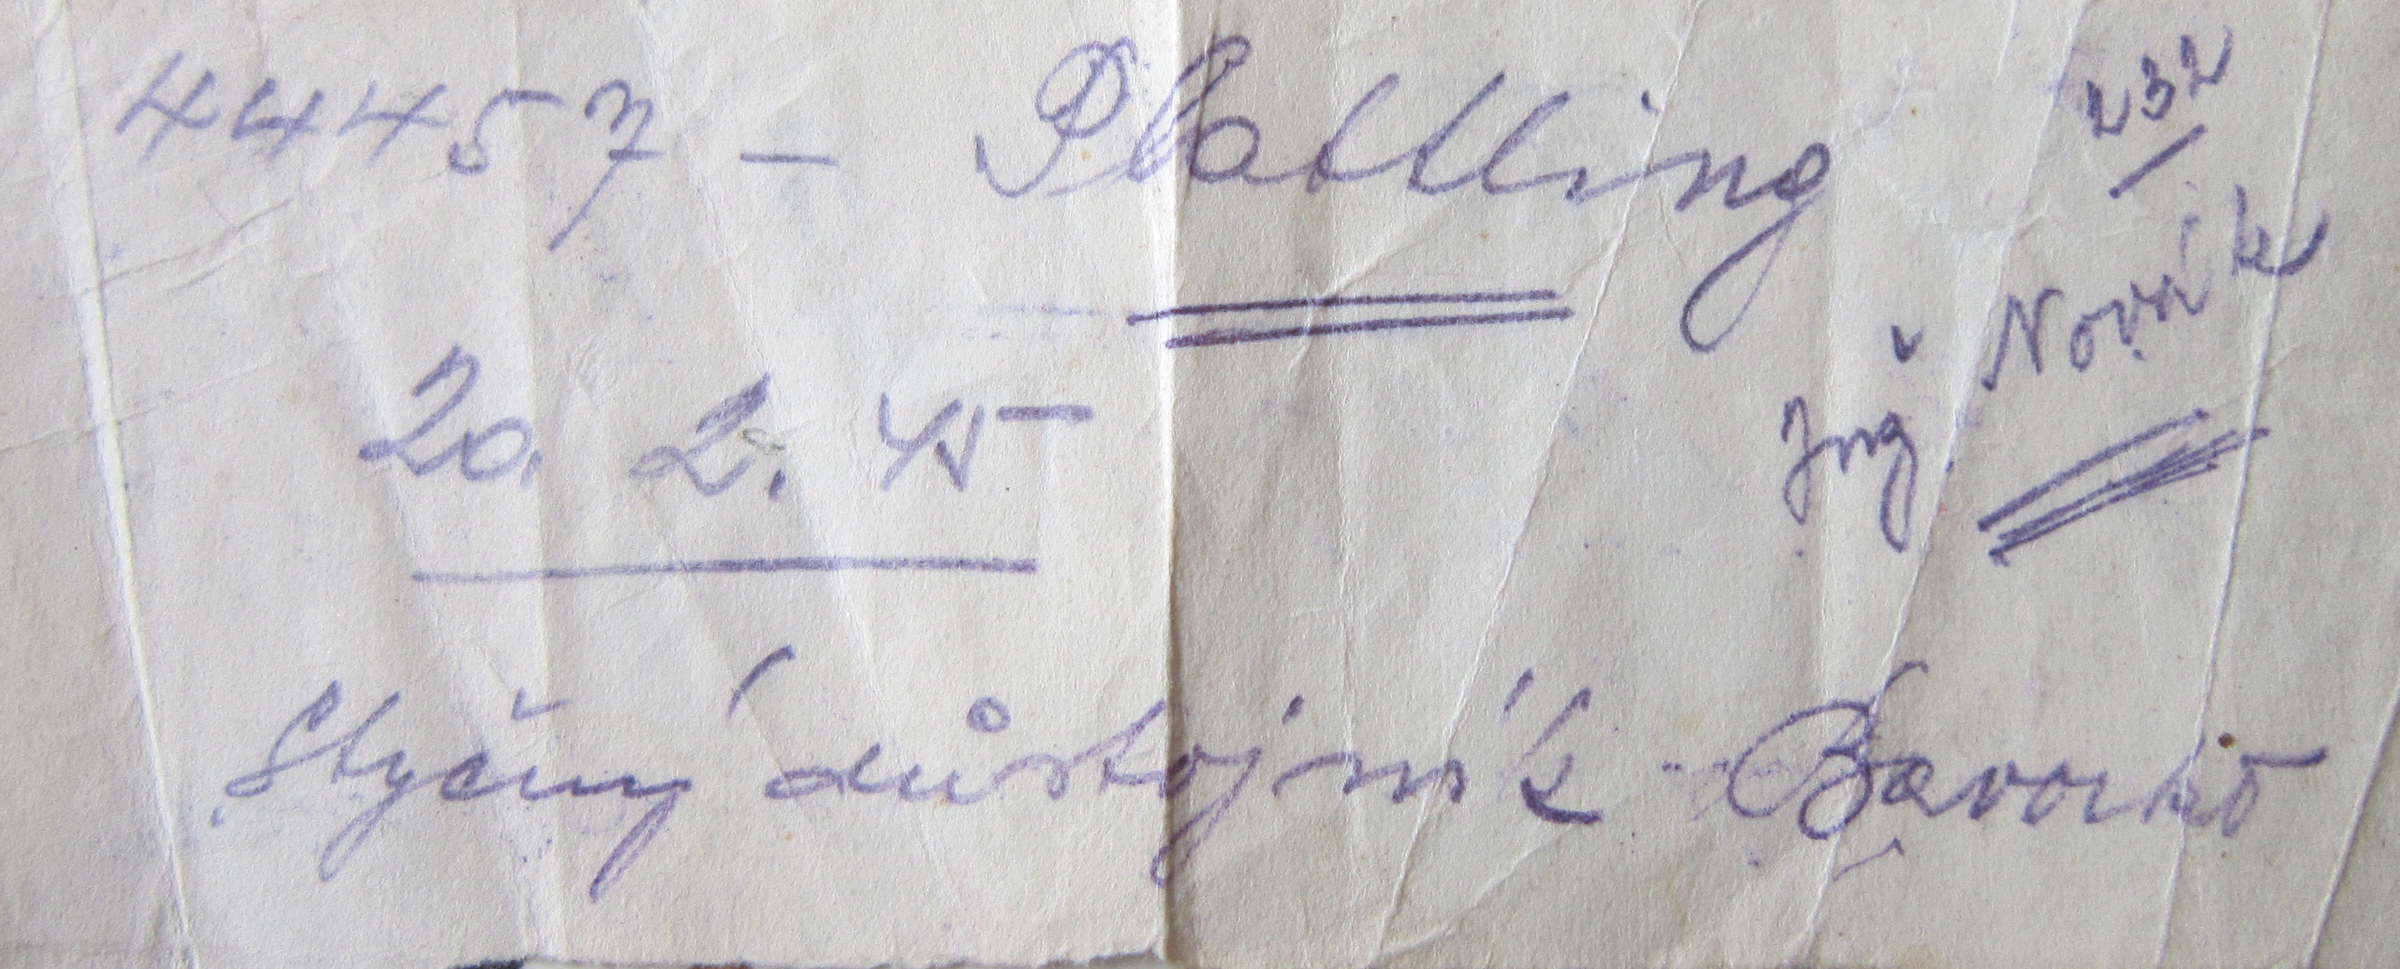 44457 – Plattling
232
Ing. Novák
20. 2. 45
Styčný důstojník Bavorsko